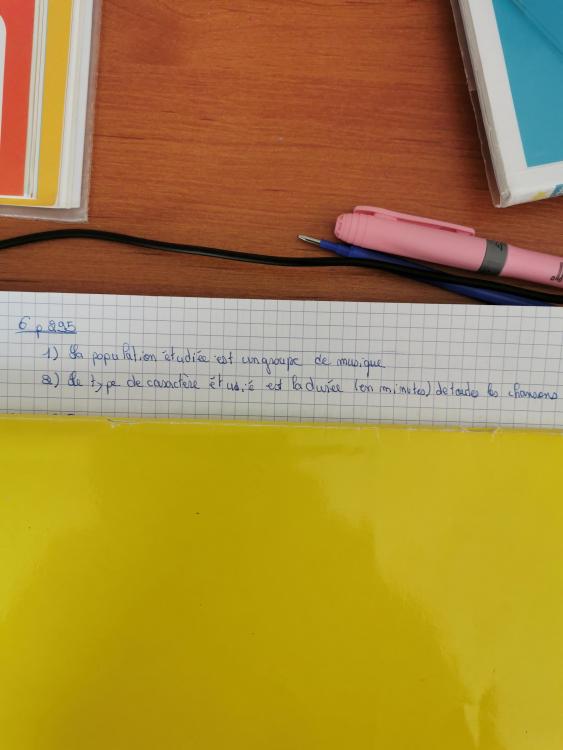 6 p 295
1) La population étudiée est un groupe de musique
2) Le type de caractère étudié est la durée (en minutes) de toutes les chansons